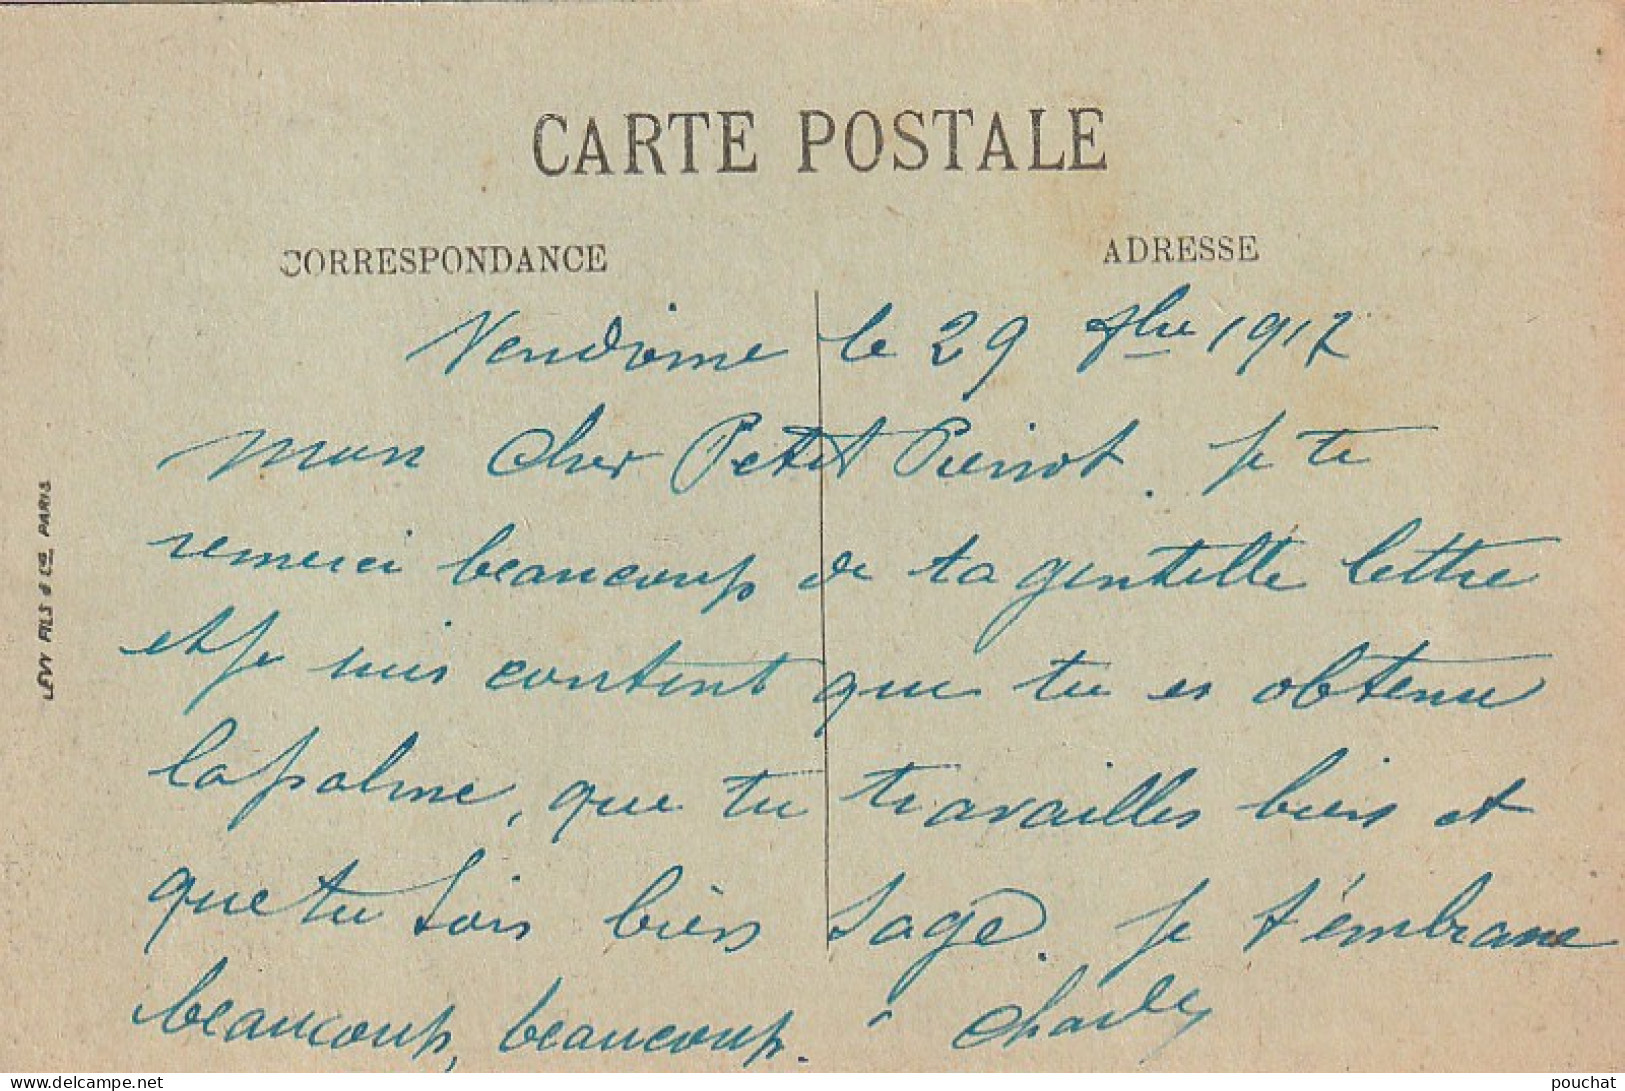 CARTE POSTALE
CORRESPONDANCE
ADRESSE
Vendôme le 29 1917
mon cher Petit Pierrot. je te
remerci beaucoup de ta gentille lettre
et je suis content que tu es obtenu
la palme, que tu travailles bien et
que tu sois bien sage. je t'émbrasse
beaucoup, beaucoup. Charles
LEVY FILS & Cie PARIS
delcampe.net
pouchat